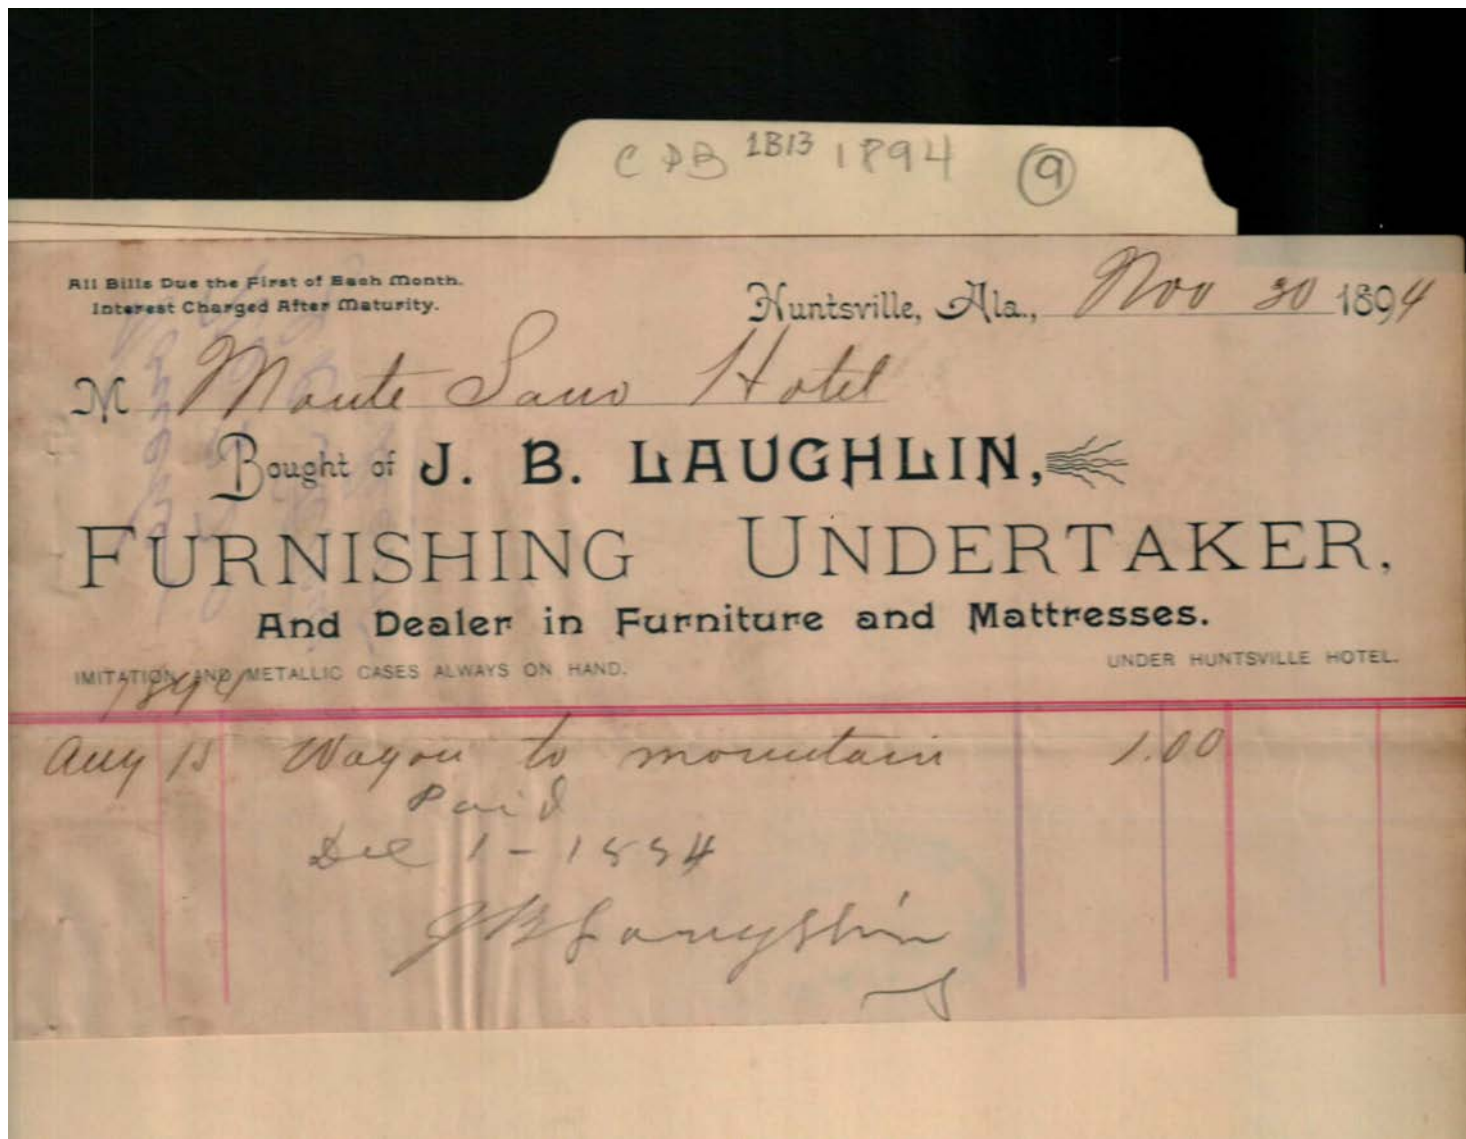 CDB 1B13 1894 9
All Bills Due the First of Each Month.
Interest Charged After Maturity.
Huntsville, Ala., Nov 30 1894
M Monte Sano Hotel
Bought of J. B. LAUGHLIN,
FURNISHING UNDERTAKER,
And Dealer in Furniture and Mattresses.
IMITATION AND METALLIC CASES ALWAYS ON HAND.
UNDER HUNTSVILLE HOTEL.
1894
Aug 15 Wagon to mountain 1.00
Paid
Dec 1-1894
J B Laughlin